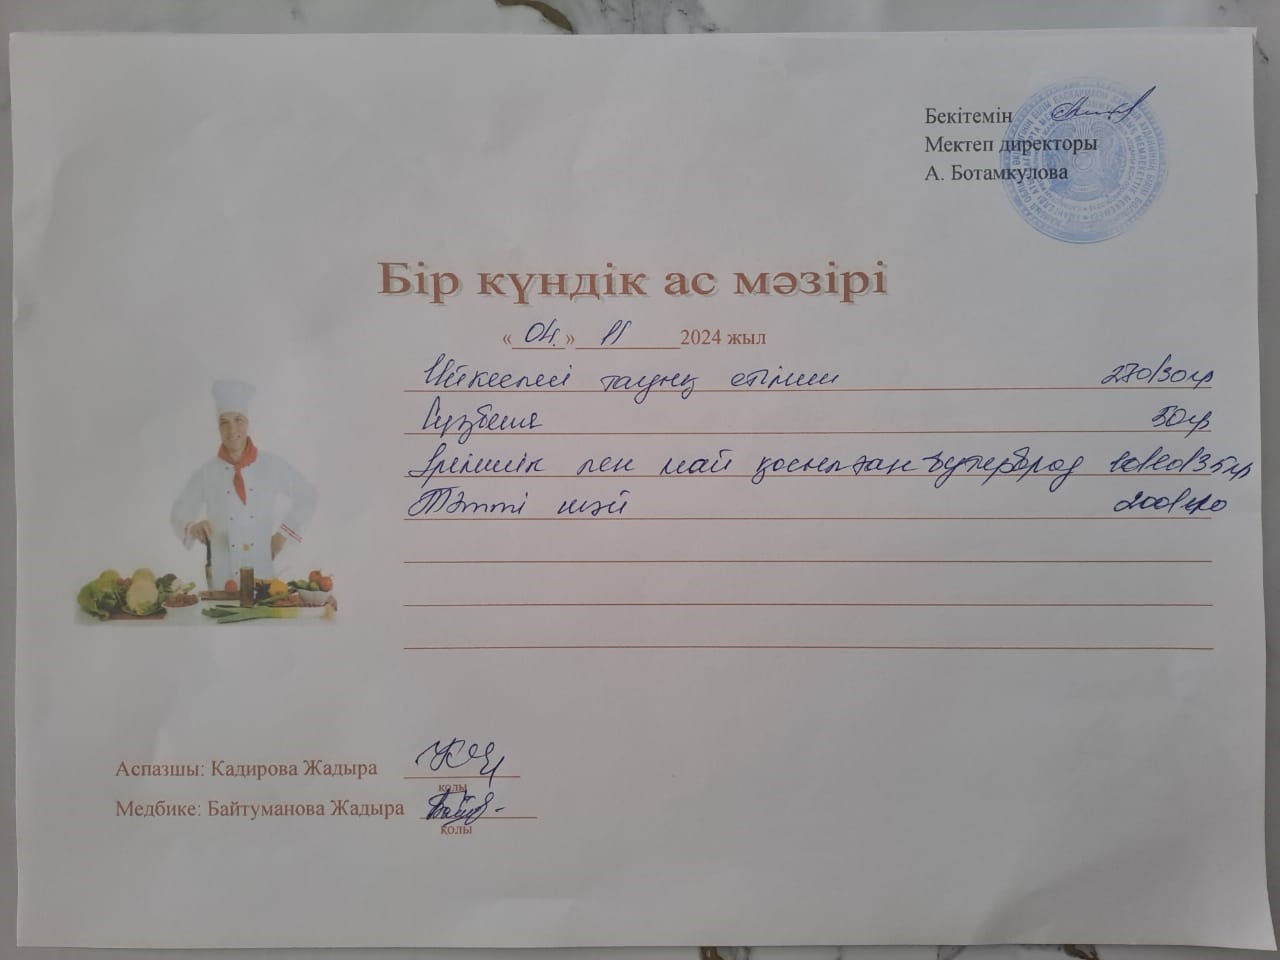 Бекітемін
Мектеп директоры
А. Ботамкулова
Бір күндік ас мәзірі
«04.» 11 2024 жыл
тауық етімен 270/30гр
Сүзбеше 50гр
Ірімшік пен май қосылған бутерброд 10/10/35гр
Тәтті шәй 200/гр
Аспазшы: Кадирова Жадыра
қолы
Медбике: Байтуманова Жадыра
қолы